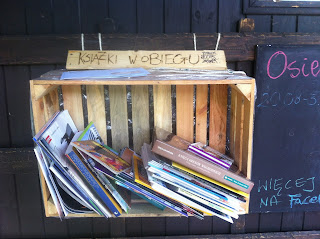 KSIĄŻKI W OBIEGU
Osie
20.08-3
WIĘCEJ
NA FACE